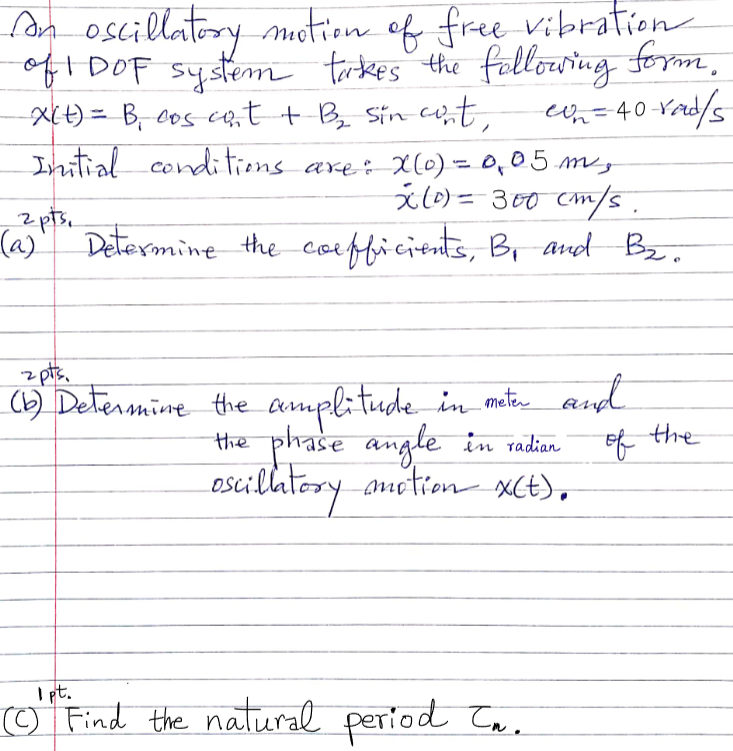 An oscillatory motion of free vibration
of 1 DOF system takes the following form.
x(t) = B₁ cos ωₙt + B₂ sin ωₙt, ωₙ = 40 rad/s
Initial conditions are: x(0) = 0.05 m,
ẋ(0) = 300 cm/s.
2 pts.
(a) Determine the coefficients, B₁ and B₂.
2 pts.
(b) Determine the amplitude in meter and
the phase angle in radian of the
oscillatory motion x(t).
1 pt.
(C) Find the natural period τₙ.